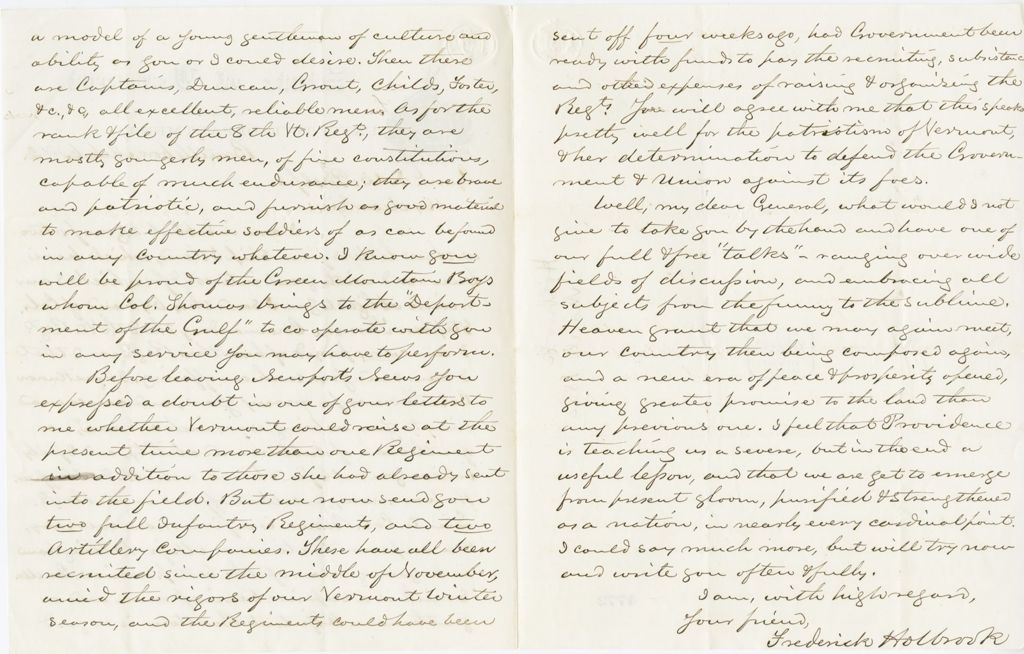 a model of a young gentleman of culture and
ability as you or I could desire. Then there
are Captains, Duncan, Grout, Childs, Foster,
&c., &c, all excellent, reliable men. As for the
rank & file of the 8th Vt. Regt., they are
mostly youngerly men, of fine constitutions,
capable of much endurance; they are brave
and patriotic, and furnish as good material
to make effective soldiers of as can be found
in any country whatever. I know you
will be proud of the Green Mountain Boys
whom Col. Thomas brings to the "Depart-
ment of the Gulf" to co operate with you
in any service you may have to perform.
Before leaving Newport's News you
expressed a doubt in one of your letters to
me whether Vermont could raise at the
present time more than one Regiment
in addition to those she had already sent
into the field. But we now send you
two full Infantry Regiments, and two
Artillery Companies. These have all been
recruited since the middle of November,
amid the rigors of our Vermont Winter
season, and the Regiments could have been
sent off four weeks ago, had Government been
ready with funds to pay the recruiting, subsistence
and other expenses of raising & organizing the
Regts. You will agree with me that this speaks
pretty well for the patriotism of Vermont,
& her determination to defend the Govern-
ment & Union against its foes.
Well, my dear General, what would I not
give to take you by the hand and have one of
our full & free "talks" - ranging over wide
fields of discussion, and embracing all
subjects from the funny to the sublime.
Heaven grant that we may again meet,
our country then being composed again,
and a new era of peace & prosperity opened,
giving greater promise to the land than
any previous one. I feel that Providence
is teaching us a severe, but in the end a
useful lesson, and that we are yet to emerge
from present gloom, purified & strengthened
as a nation, in nearly every cardinal point.
I could say much more, but will try now
and write you often & fully.
I am, with high regard,
Your friend,
Frederick Holbrook